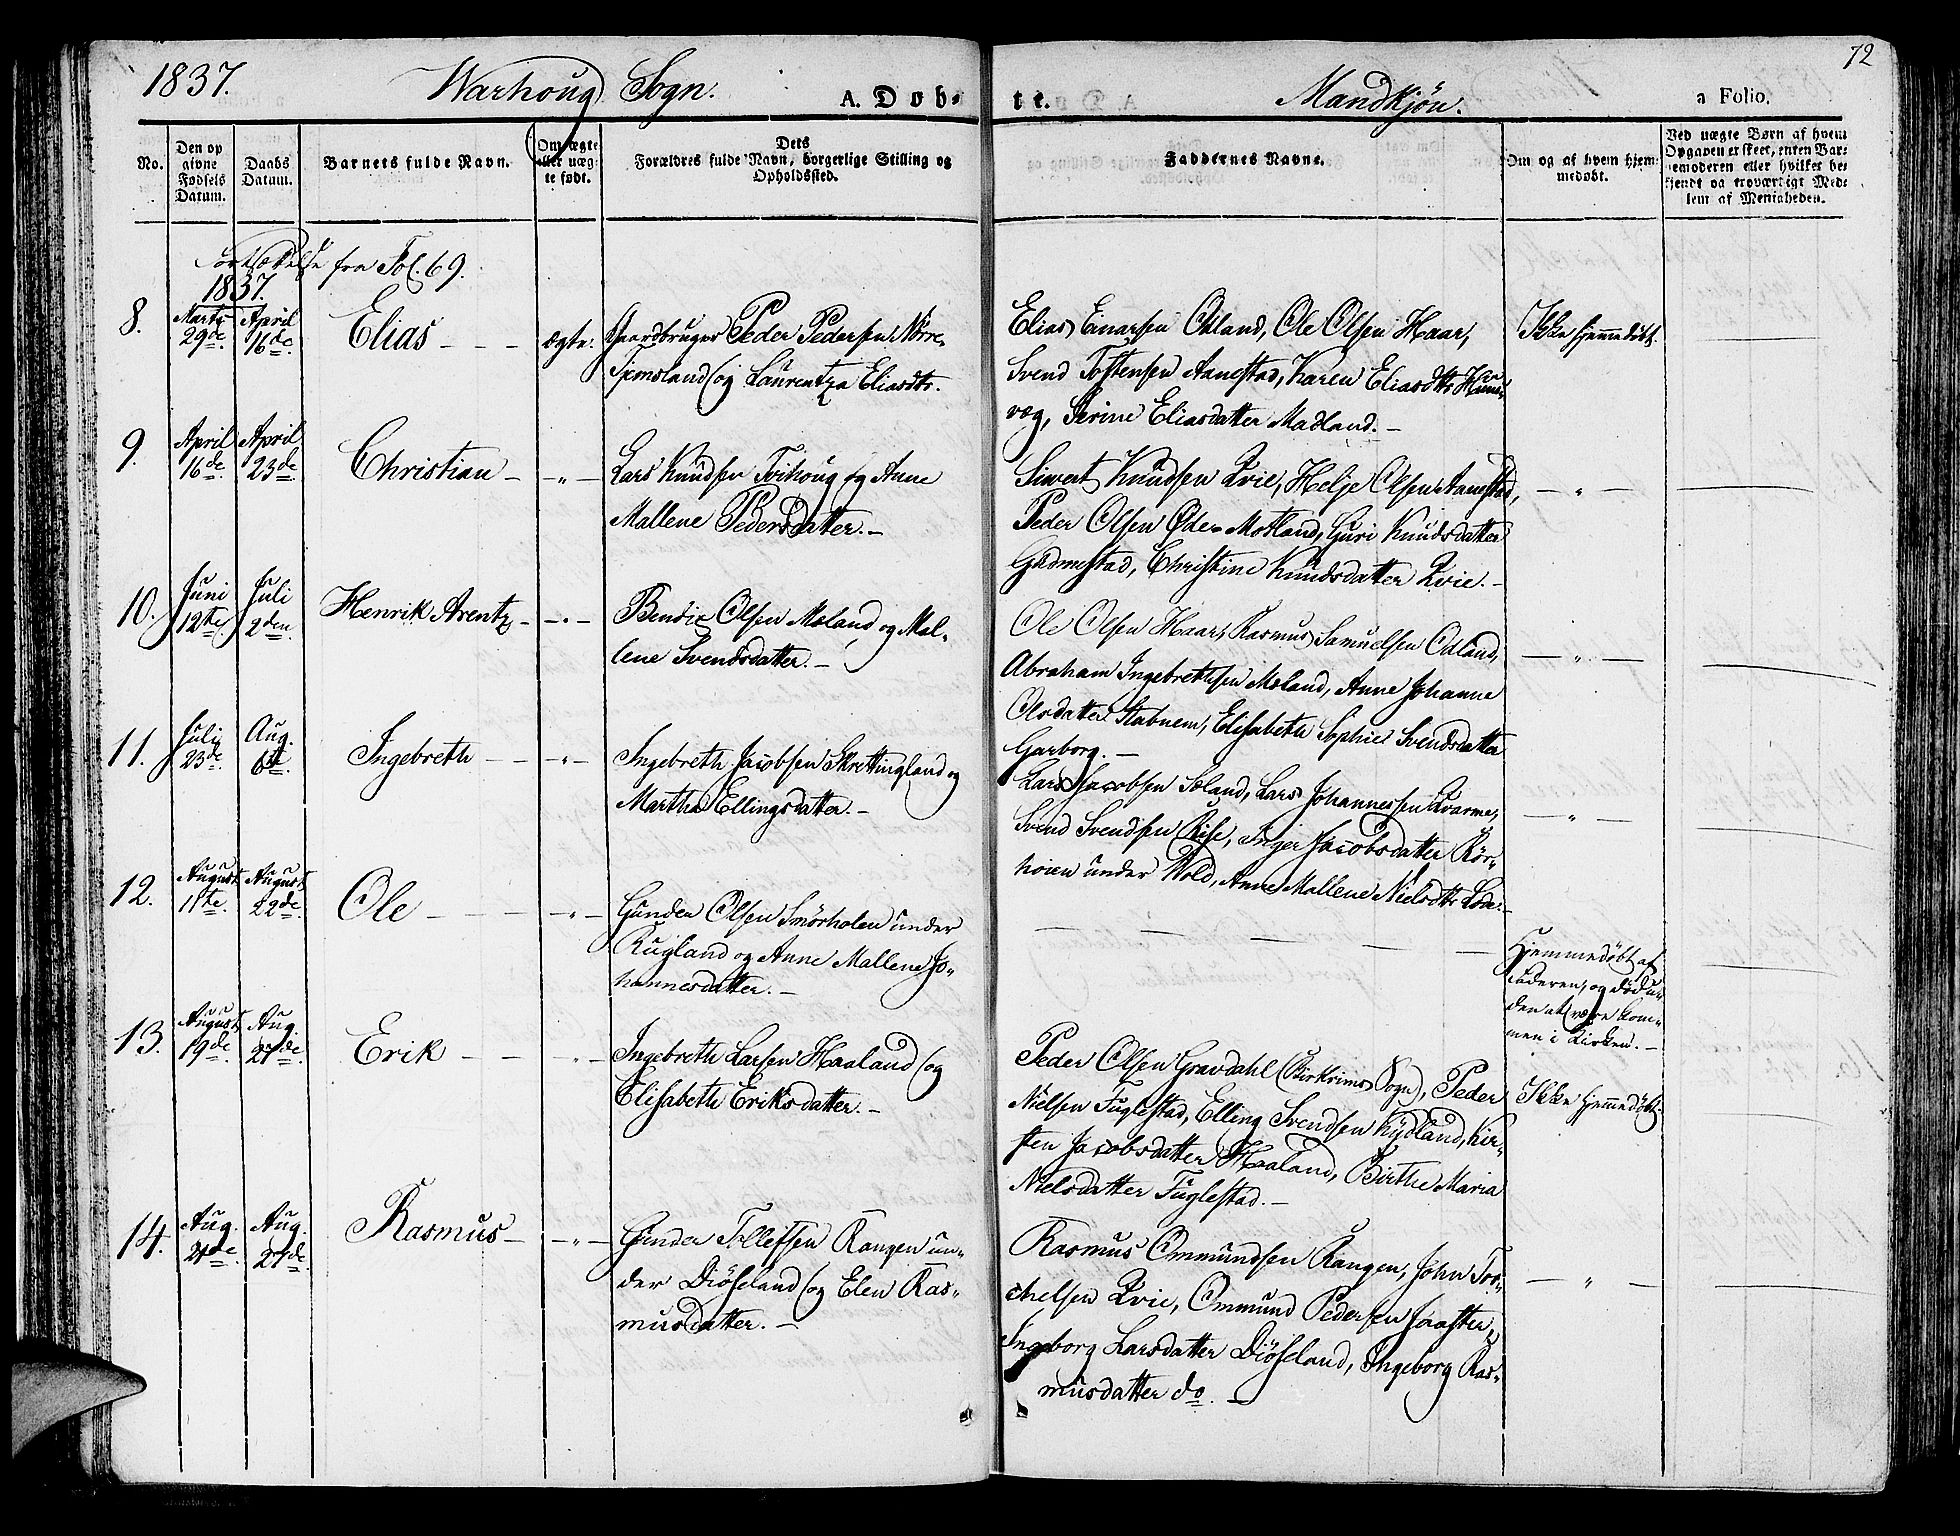 72
1837. Warhoug Sogn. A. Døbte. Mandkjøn. a Folio.
No.
Den opgivne Fødsels Datum.
Daabs Datum.
Barnets fulde Navn.
Om ægte eller uægte født.
Dets Forældres fulde Navn, borgerlige Stilling og Opholdssted.
Faddernes Navne.
Om og af hvem hjemmedøbt.
Ved uægte Børn af hvem Opgaven er skeet, enten Barnemoderen eller hvilket bekjendt og troværdigt Medlem af Menigheden.
Fortsættelse fra Fol. 69.
1837.
8. Marts 29de. April 16de. Elias ægte. Gaardbruger Peder Pedersen Nørre
Tjemsland og Laurentza Eliasdtr.
Elias Einarsen Ødland, Ole Olsen Haar,
Svend Tostensen Aanestad, Karen Eliasdtr
vog, Serine Eliasdatter Madland. –
Ikke hjemmedøbt.
9. April 16de. April 23de. Christian – " – Lars Knudsen Tvihoug og Anne
Mallene Pedersdatter. –
Siwert Knudsen Qvie, Helje Olsen Aanestad,
Peder Olsen Øde-Motland, Guri Knudsdatter
Gudmestad, Christine Knudsdatter Qvie. –
– " –
10. Juni 12te. Juli 2den. Henrik Arentz – " – Bendix Olsen Moland og Mal-
lene Svendsdatter. –
Ole Olsen Haar, Rasmus Samuelsen Odland,
Abraham Ingebrethsen Moland, Anne Johanne
Olsdatter Stabnem, Elisabeth Sophie Svendsdatter
Garborg. –
– " –
11. Juli 23de. Aug. 6te. Ingebreth – " – Ingebreth Jacobsen Skrettingland og
Marthe Ellingsdatter. –
Lars Jacobsen Søland, Lars Johannessen Qvarme,
Svend Svendsen Rise, Inger Jacobsdatter Rør-
hoien under Wold, Anne Mallene Nielsdtr Lode.
– " –
12. August 11te. August 22de. Ole – " – Gunder Olsen Smørholen under
Rugland og Anne Mallene Jo-
hannesdatter. –
Hjemmedøbt af
Faderen, og død u-
den at være kom-
men i Kirken. –
13. August 19de. Aug. 27de. Erik " – Ingebreth Larsen Haaland og
Elisabeth Eriksdatter. –
Peder Olsen Gravdahl (Birkrims Sogn), Peder
Nielsen Fuglestad, Elling Svendsen Kydland, Kir-
sten Jacobsdatter Haaland, Birthe Maria
Nielsdatter Fuglestad. –
Ikke hjemmedøbt.
14. Aug. 21de. Aug. 27de. Rasmus – " – Gunder Tollefsen Rangen un-
der Diøseland og Elen Ras-
musdatter. –
Rasmus Ommundsen Rangen, John Tor-
chelsen Qvie, Ommund Pedersen
Ingeborg Larsdatter Diøseland, Ingeborg Ras-
musdatter do. –
– " –